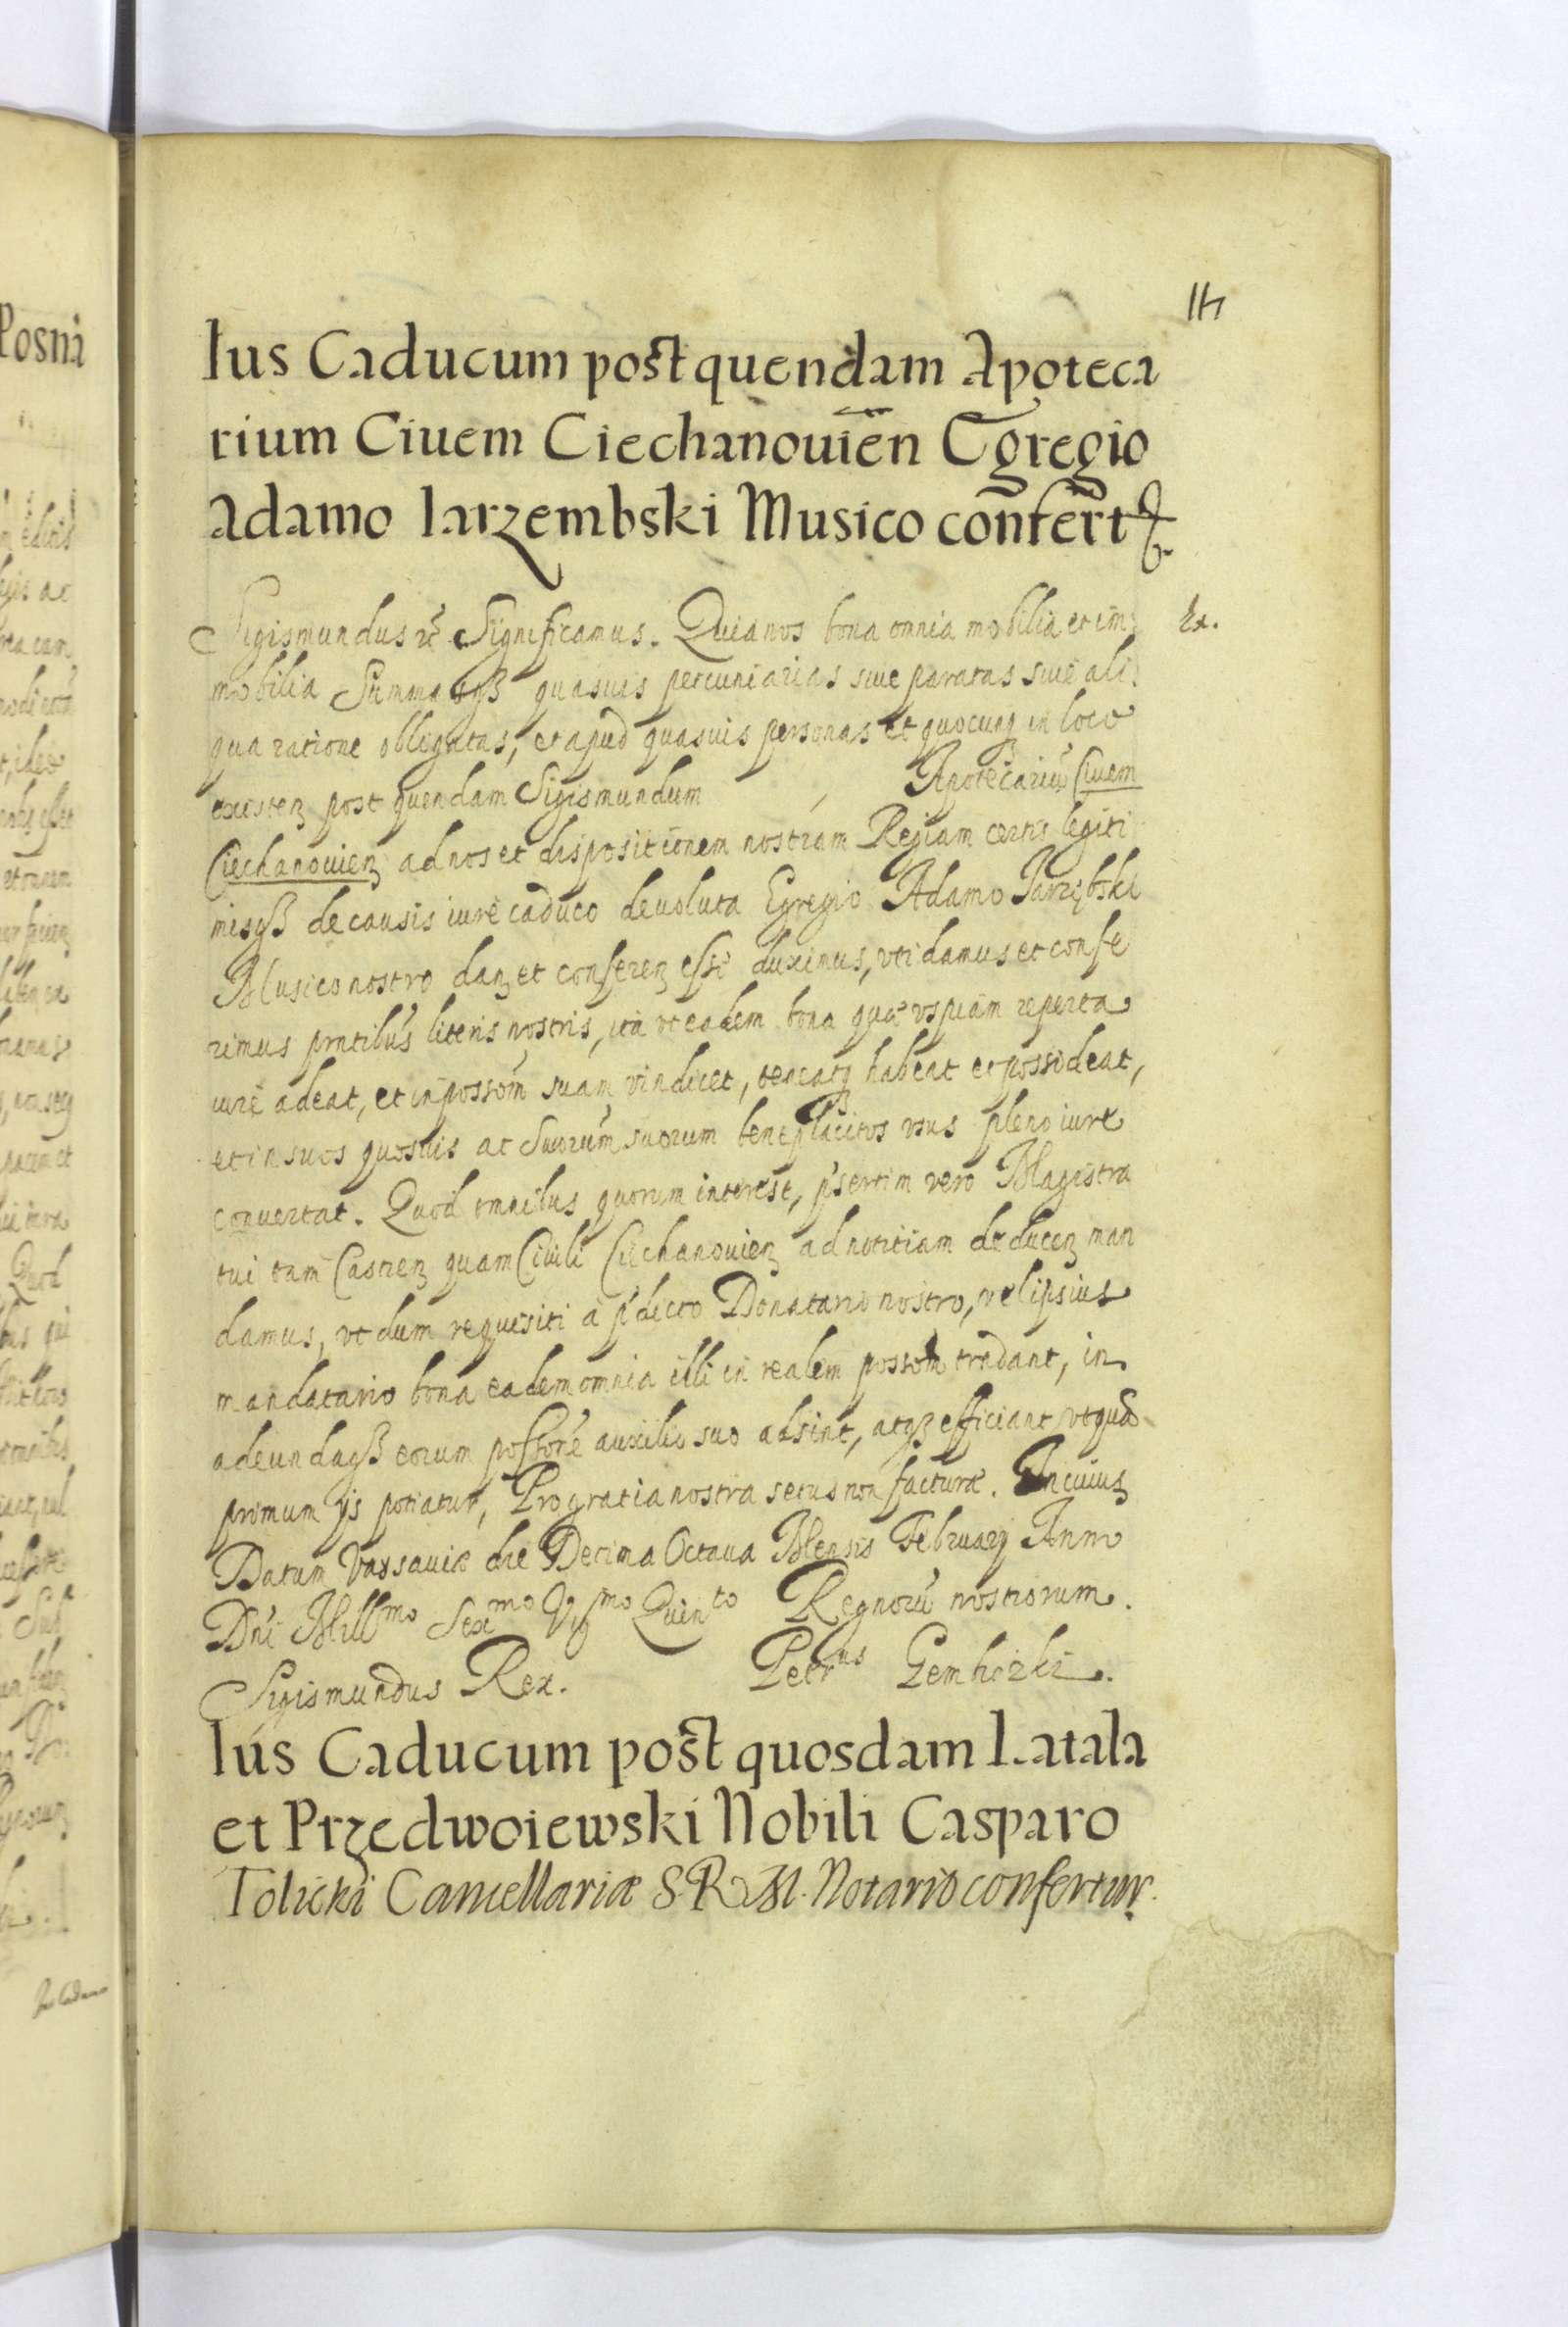 114
Ius Caducum post quendam Apoteca
rium Ciuem Ciechanouien̄ Egregio
Adamo Iarzembski Musico confert͛
Sigismundus ꝛc̄ Significamus. Quia nos bona omnia mobilia et im
Ex.
mobilia Summasqꝫ quasuis pecuniarias siue paratas siue ali
qua ratione obligatas, et apud quasuis personas et quocunqꝫ in loco
existenꝫ post quendam Sigismundum , Apotecariū Ciuem
Ciechanouienꝫ ad nos et dispositionem nostram Regiam certis legiti
misqꝫ de causis iure caduco deuoluta Egregio Adamo Jarzębski
Musico nostro danꝫ et conferenꝫ esse duximus, vti damus et confe
rimus pn̄tibus literis nostris, ita vt eadem bona quæ vspiam reperta
iure adeat, et in possōm suam vindicet, teneatqꝫ habeat et possideat,
et in suos quosuis ac Suorum suorum beneplacitos vsus pleno iure
conuertat. Quod omnibus quorum interest, p̄sertim vero Magistra
tui tam Castrenꝫ quam Ciuili Ciechanouienꝫ ad notitiam deducenꝫ man
damus, vt dum requisiti a p̄dicto Donatario nostro, vel ipsius
mandatario bona eadem omnia illi in realem possōm tradant, in
adeundaqꝫ eorum possōne auxilio suo adsint, atqꝫ efficiant vt quā
primum ijs potiatur, Pro gratia nostra secus non facturæ. In cuiusꝫ
Datum Varsauiæ die Decima Octaua Mensis Februarij Anno
Dn̄i Mill^mo Sex^mo Vig^mo Quin^to Regnorū nostrorum.
Sigismundus Rex. Petr^us Gembizki.
Ius Caducum post quosdam Latala
et Przedwoiewski Nobili Casparo
Tolicki Cancellariæ S.R.M. Notario confertur.